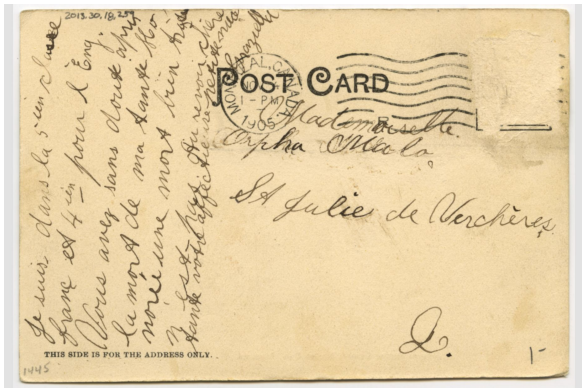 2013.30.18.25
POST CARD
MONTREAL, CANADA
1 - PM
1905
Mademoiselle.
Orpha Malo
St Julie de Verchères
Q.
Je suis dans la 5ien classe
franc et 4ien pour l'Eng.
Vous avez sans doute appris
la mort de ma tante
une mort bien
n'est pas Au revoir chère
tante votre affectieuse
THIS SIDE IS FOR THE ADDRESS ONLY.
1445
1-